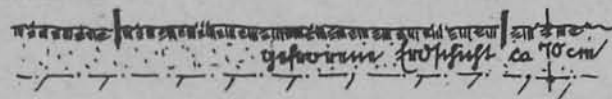 gefrorene Erdschicht ca 70 cm